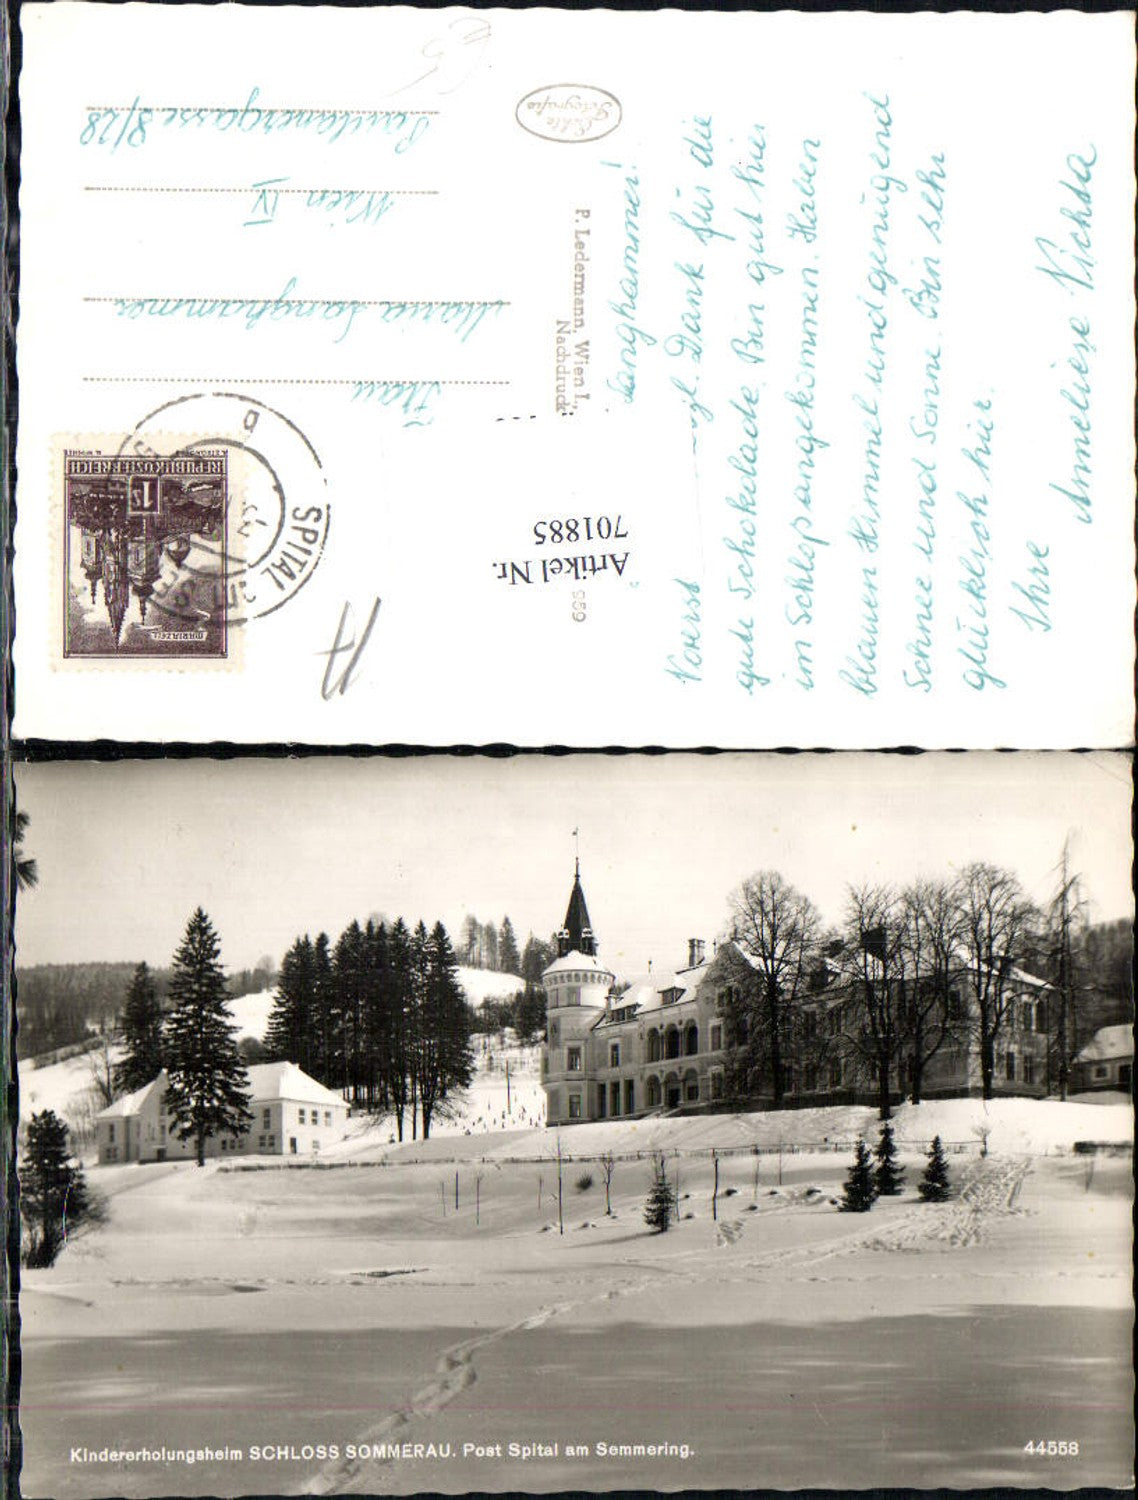 Langhammer!
Vorerst vgl. Dank für die
gute Schokolade. Bin gut hier
im Schloß angekommen. Haben
blauen Himmel und genügend
Schnee und Sonne. Bin sehr
glücklich hier.
Ihre
Anneliese Vichta
P. Ledermann, Wien I.,
Nachdruck
959
Artikel Nr.
701885
Echte
Fotografie
Frau
Maria Langhammer
Wien IV
Paulanergasse 8/28
REPUBLIK ÖSTERREICH
1 S
MARIAZELL
SPITAL
Kindererholungsheim SCHLOSS SOMMERAU. Post Spital am Semmering.
44558